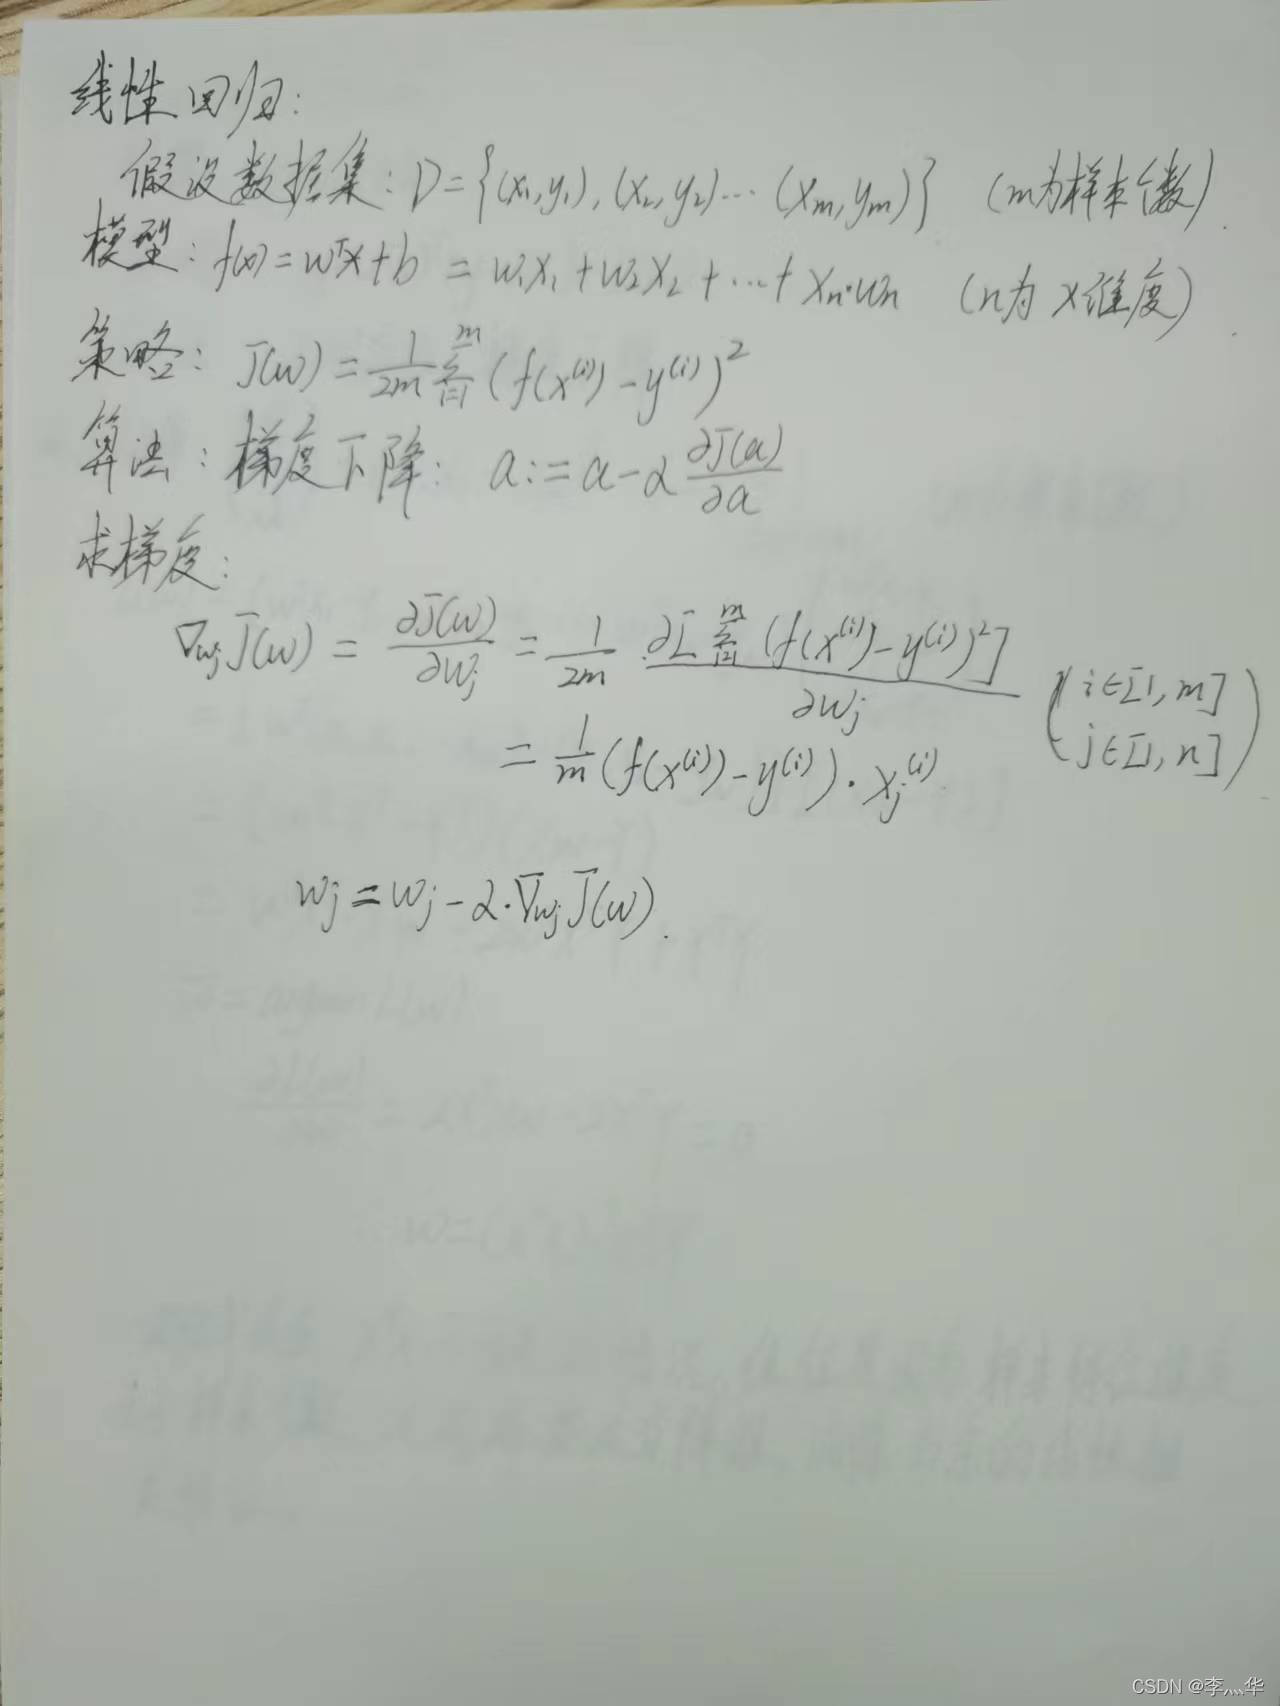 线性回归:
假设数据集: D={(x₁,y₁),(x₂,y₂)…(xm,ym)} (m为样本个数).
模型: f(x)=wᵀx+b = w₁x₁+w₂x₂+…+xn·wn (n为x维度)
策略: J(w)=1/2m ∑_{i=1}^{m}(f(x⁽ⁱ⁾)-y⁽ⁱ⁾)²
算法: 梯度下降: a:=a-α ∂J(a)/∂a
求梯度:
∇wj J(w) = ∂J(w)/∂wj = 1/2m ∂[∑_{i=1}^{m}(f(x⁽ⁱ⁾)-y⁽ⁱ⁾)²]/∂wj (i∈[1,m] j∈[1,n])
= 1/m (f(x⁽ⁱ⁾)-y⁽ⁱ⁾)·xj⁽ⁱ⁾
wj=wj-α·∇wj J(w).
CSDN @李灬华